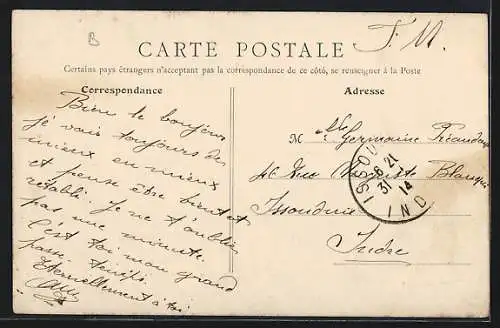 B
F. M.
CARTE POSTALE
Certains pays étrangers n'acceptant pas la correspondance de ce côté, se renseigner à la Poste
Correspondance
Adresse
Bien le bonjour
je vais toujours de
mieux en mieux
et pense être bientôt
rétabli. Je ne t'oublie
pas une minute.
C'est toi mon grand
passe temps.
Eternellement à toi
M elle Germaine
46 Rue Blanqui
Issoudun
Indre
ISSOU
21
31
14
IND